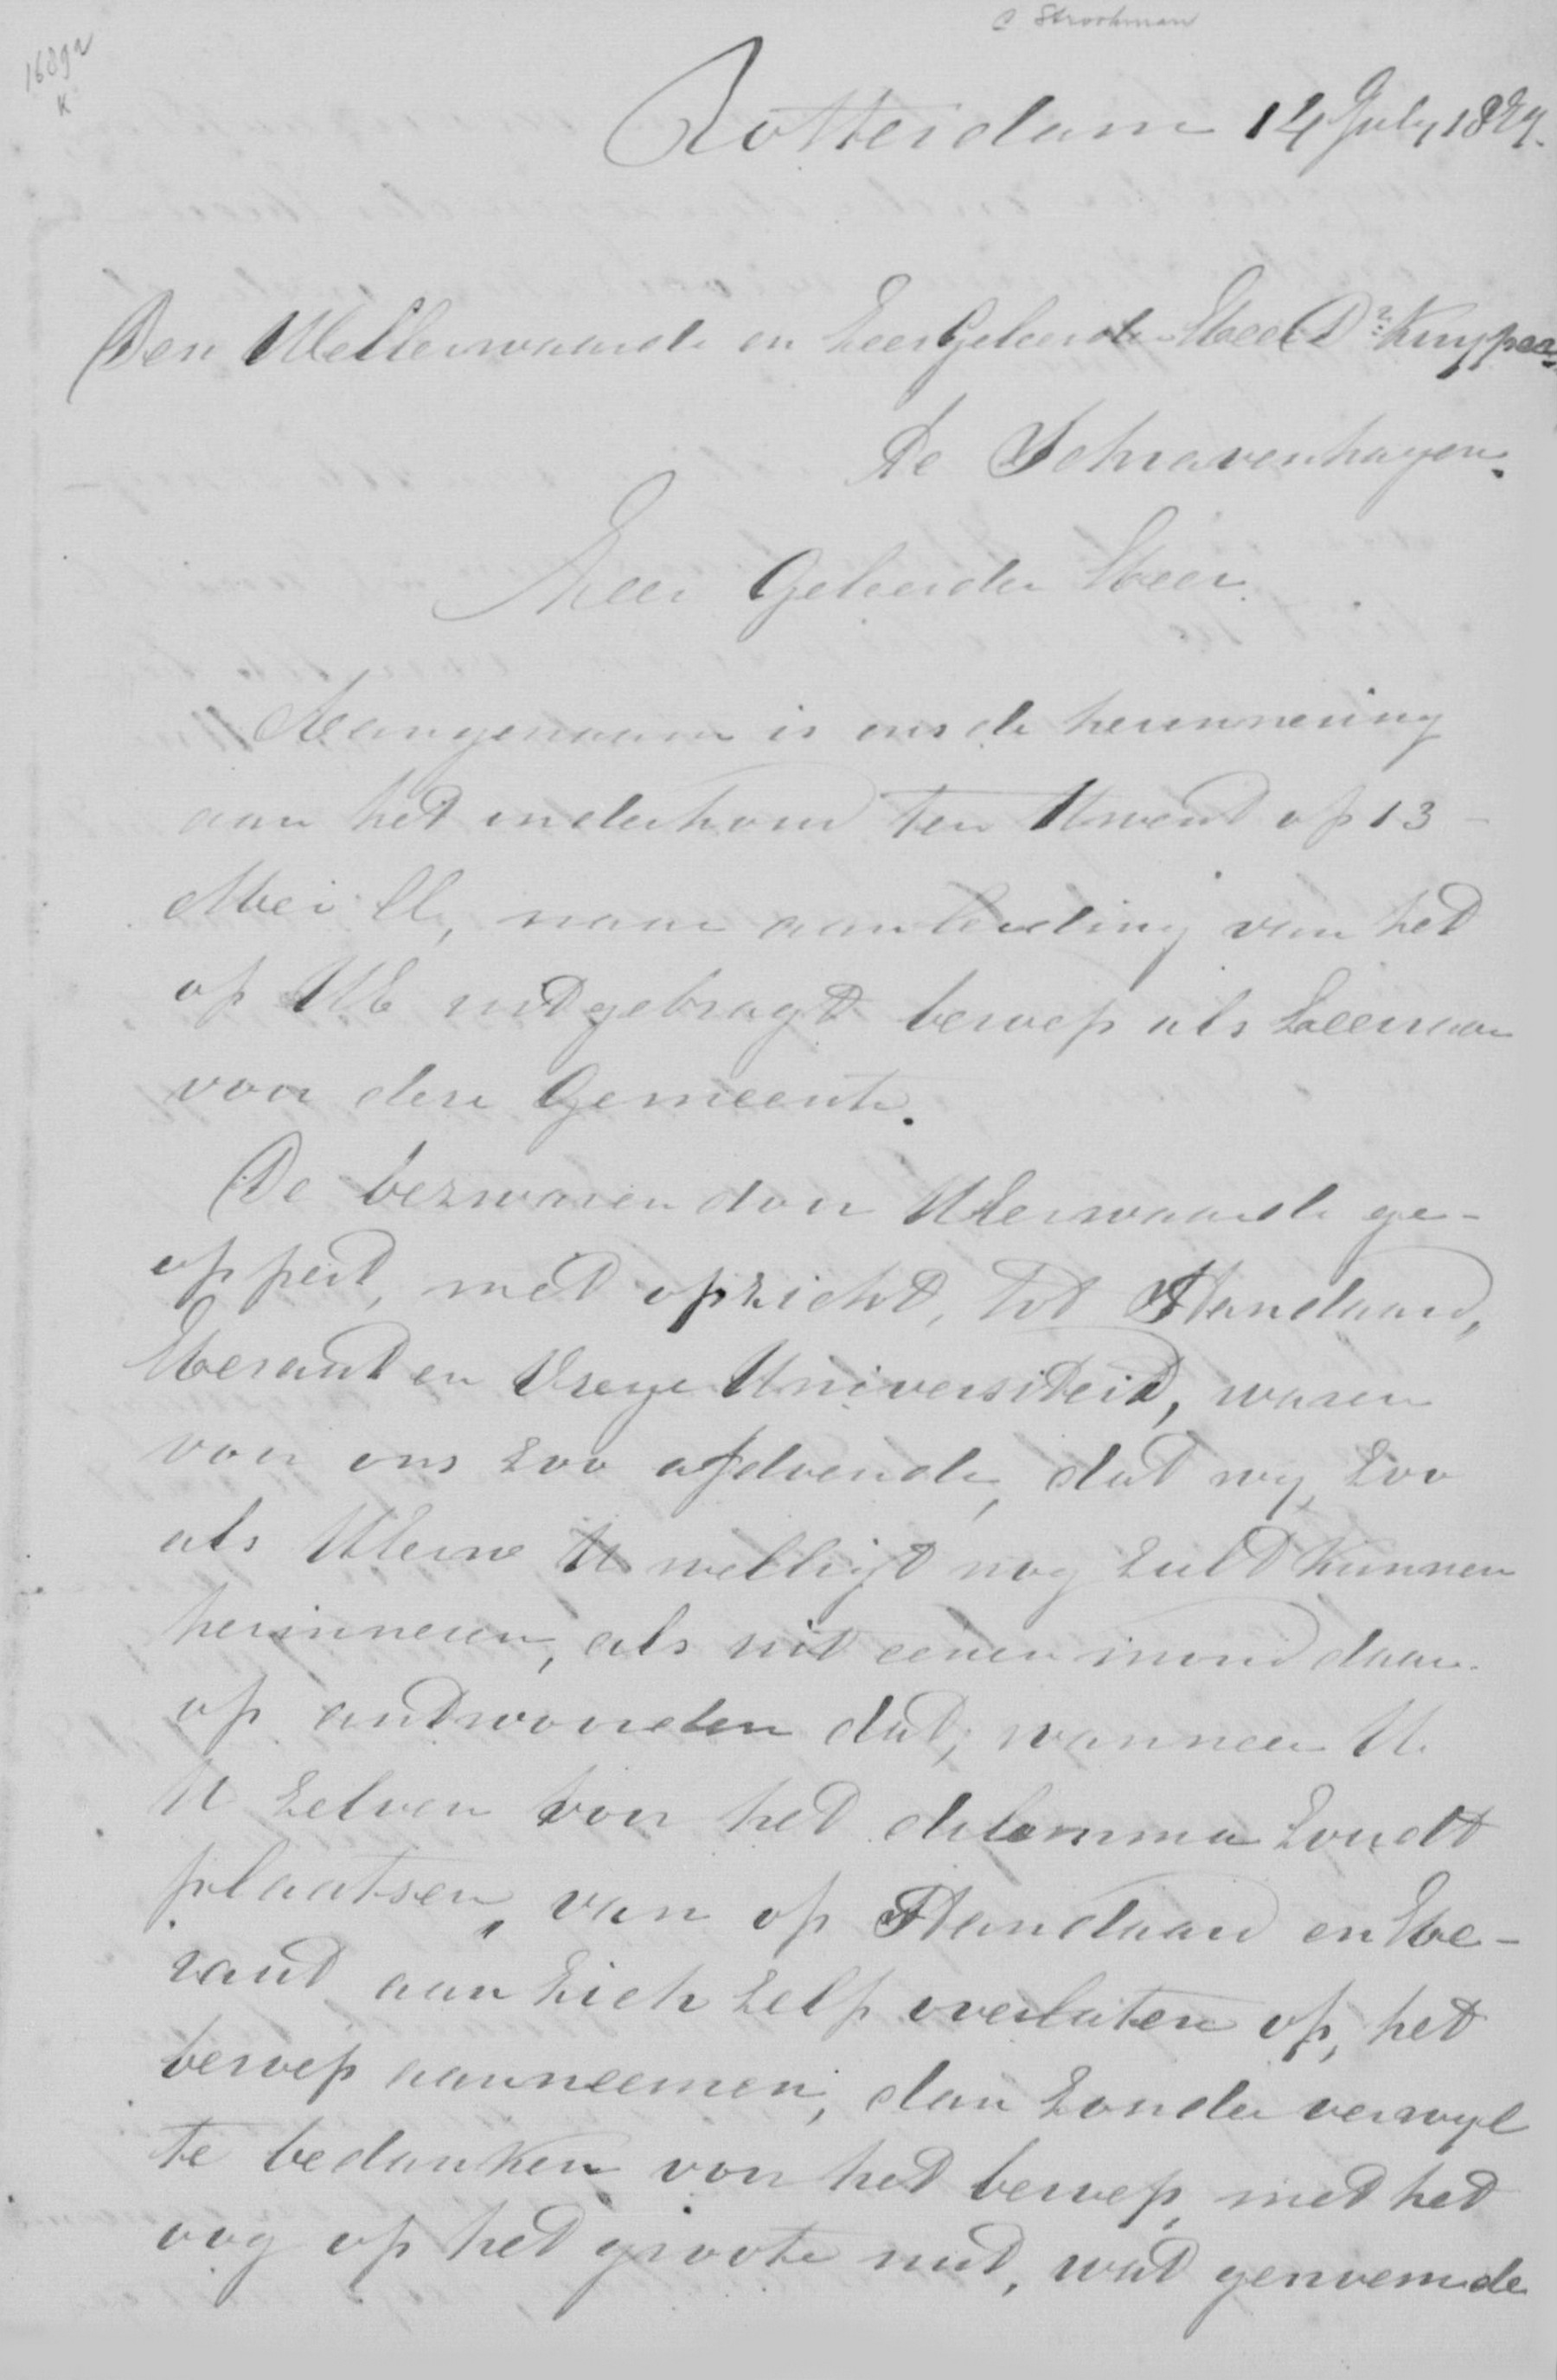 C Strookman
1689a
K
Rotterdam 14 July 1879.
Den WelEerwaarde en Zeer Geleerden Heer Dr Kuyper
Te Schravenhagen.
Zeer Geleerden Heer.
Aangenaam is ons de herinnering
aan het onderhoud ten Uwent op 13
Mei ll, naar aanleiding van het
op UE uitgebragt beroep als Leeraar
voor dese Gemeente.
De bezwaren door UEerwaarde ge-
oppert, met opzicht, tot Standaard,
Heraut en Vreye Universiteid, waren
voor ons zoo afdoende, dat wy, zoo
als UEerw U welligt nog zult kunnen
herinneren, als uit eenen mond daar
op antwoorden dat, wanneer U.
U zelven voor het delemma zoudt
plaatsen, van op Standaard en He-
raut aan zich zelf overlaten of, het
beroep aanneemen, dan zonder verwyl
te bedanken voor het beroep, met het
oog op het groote nut, wat genoemde